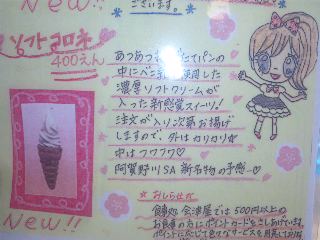 New!!
ございます。
ソフトコロネ
400えん
あつあつ
てパンの
中に
使用した
濃厚ソフトクリームが
入った新感覚スイーツ!
注文が入り次第お揚げ
しますので、外はカリカリ
中はフワフワ♡
阿賀野川SA新名物の予感…♡
New!!
＊おしらせ
食事処 会津屋では500円以上の
お食事の方にポイントカードをさしあげています。
ポイントに応じて色々なサービスを用意しており